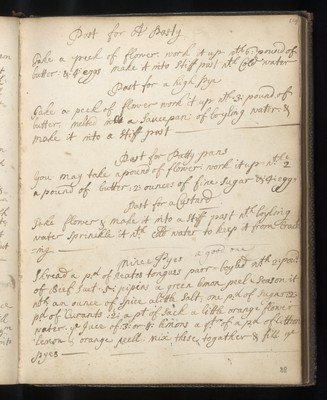 Past for A Pasty
Take a peck of flower work it up wth 6: pound of
butter: & 4: eggs make it into stiff past wth Cold water
Past for a high Pye
Take a peck of flower work it up wth 3: pound of
butter melted in a Saucepan of boyling water: &
make it into a Stiff past
Past for Patty pans
You may take a pound of flower work it up wth 1/2
a pound of butter: 2: ounces of fine Sugar & eggs
Past for a Custard
Take flower & make it into a stiff past wth boyling
water Sprinkle it wth Cold water to keep it from Crack
ing
Mince Pyes a good one
Shread a pd of neats tongues parr boyled wth a pd
of Beef Suet: 5: pipins a green limon peel: Season it
wth an ounce of Spice alitle Salt, one pd of Sugar: 2:
pd of Curants: a pt of Sack a litle orange flower
water, ye Juce of 3: or 4: limons a of a pd of Citteron
lemon & orange peell: mix these together & fill ye
Pyes